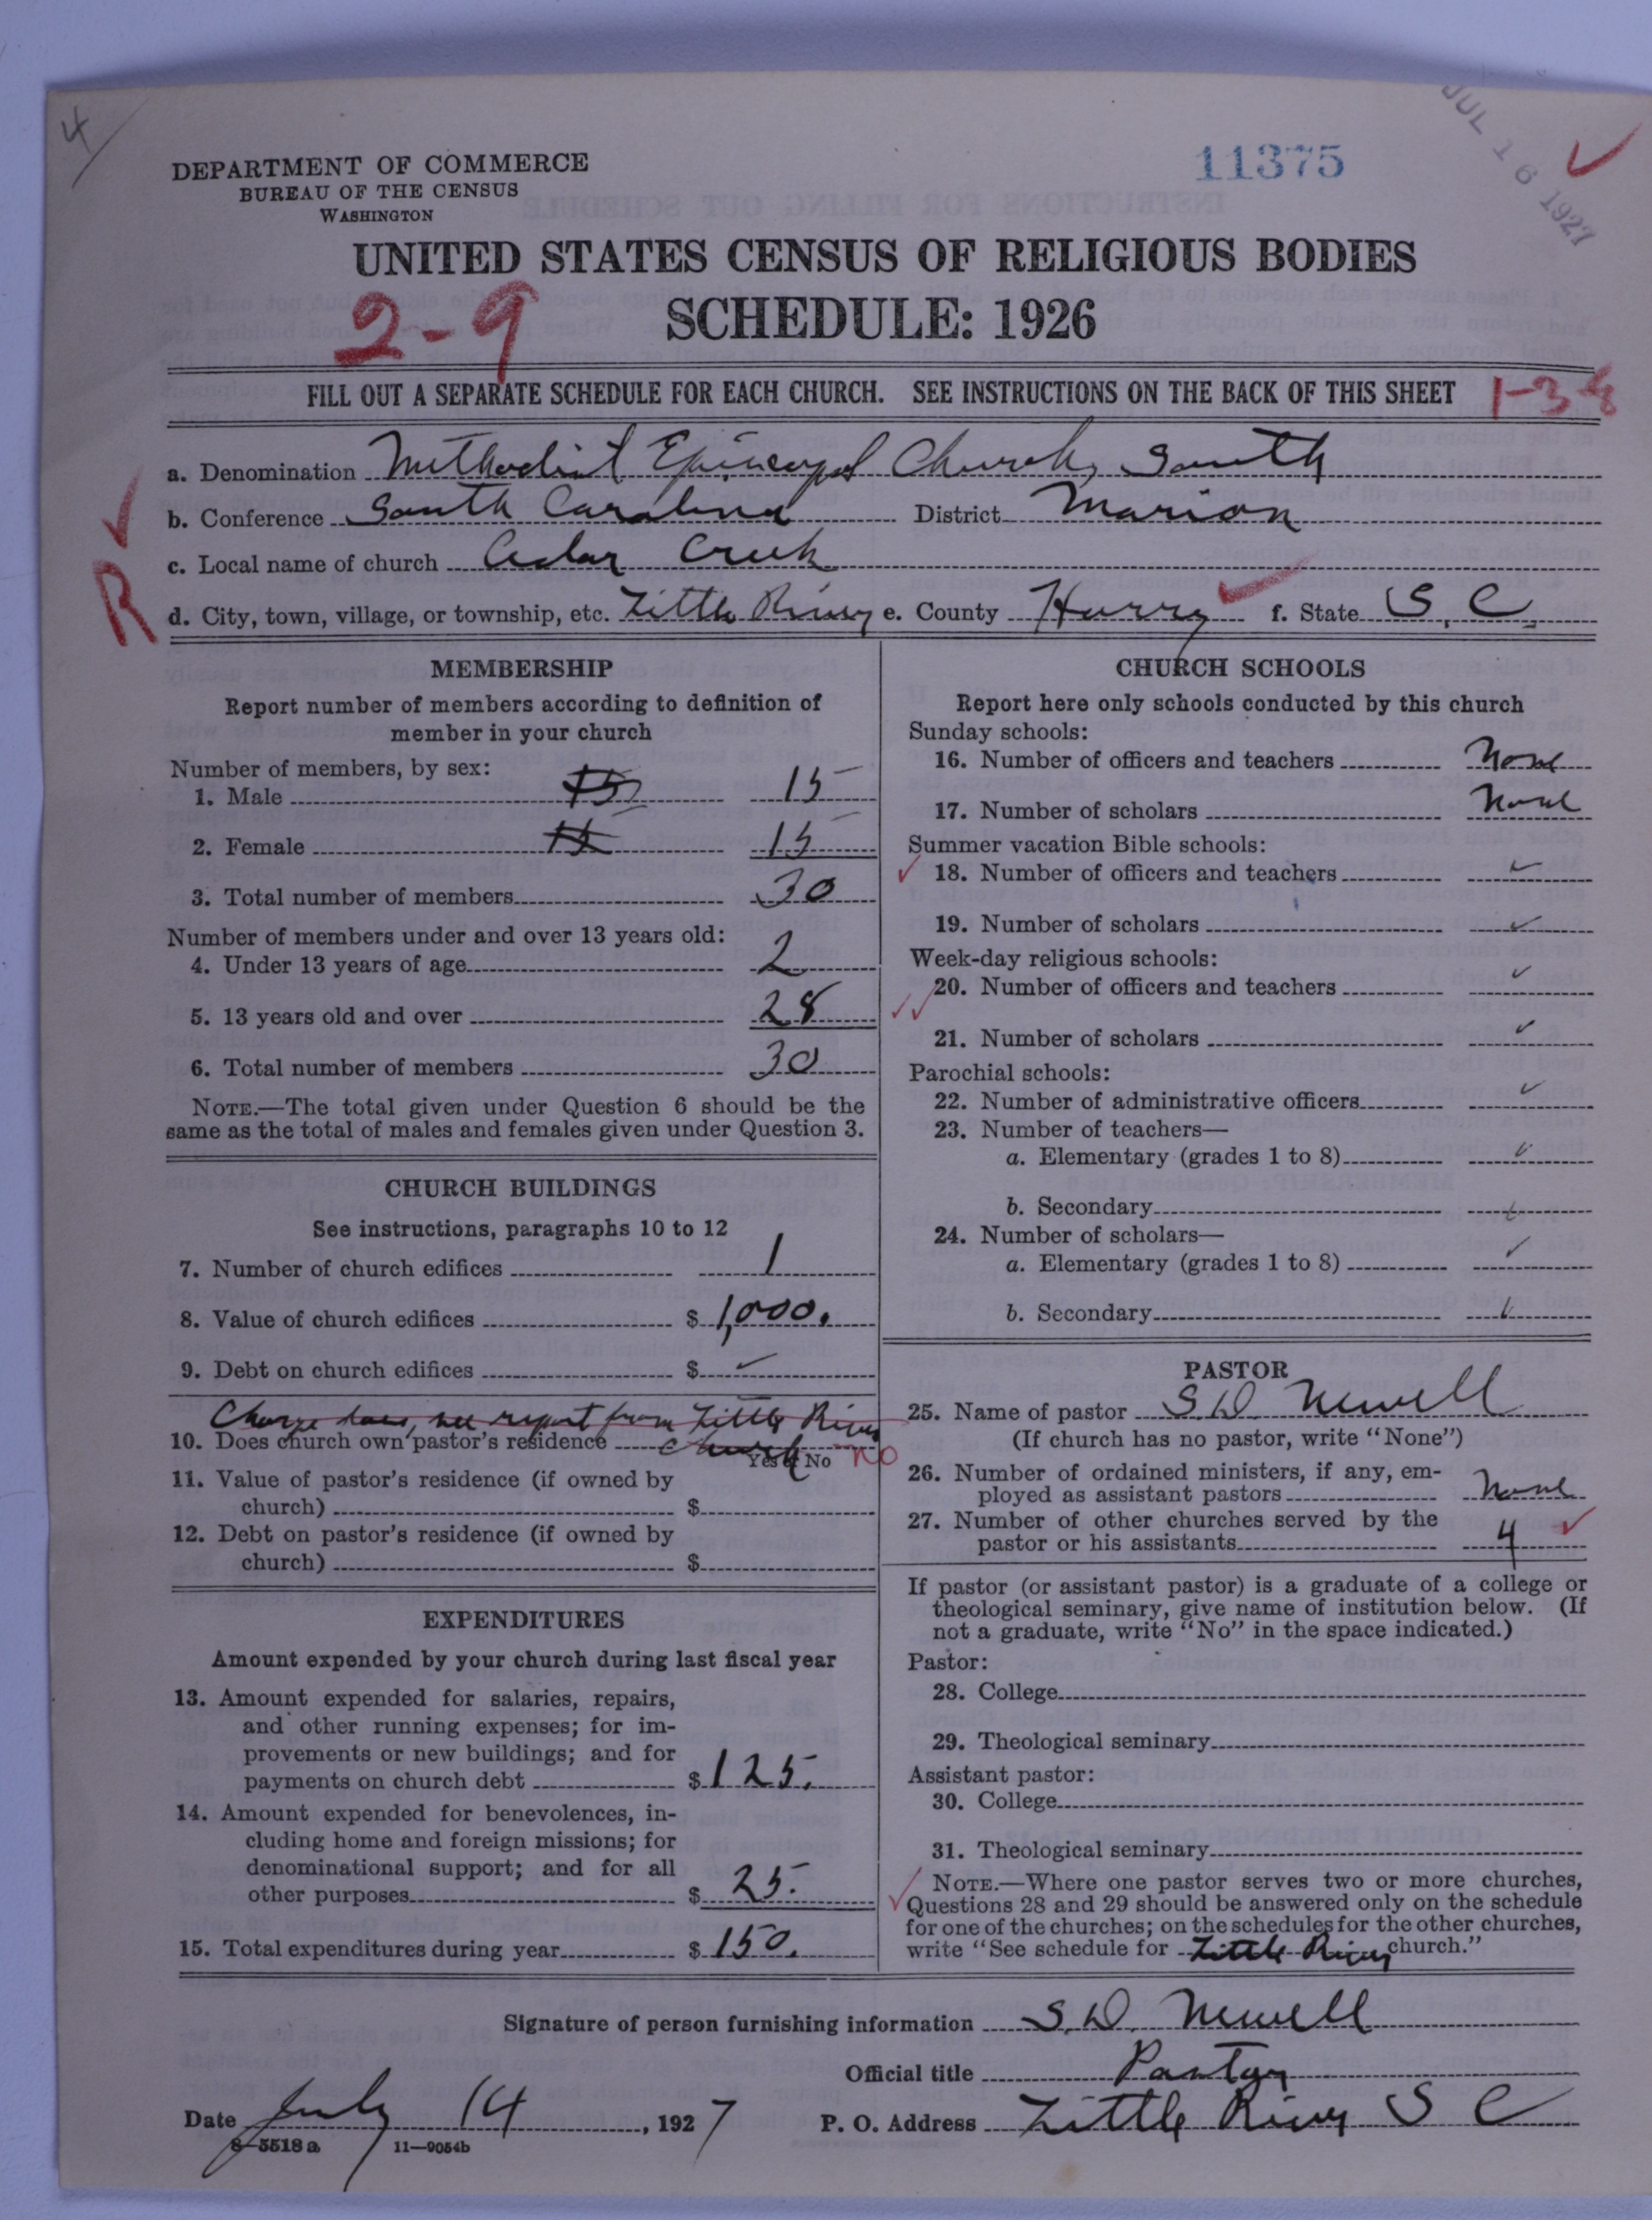 4
DEPARTMENT OF COMMERCE
BUREAU OF THE CENSUS
WASHINGTON
11375
JUL 16 1927
UNITED STATES CENSUS OF RELIGIOUS BODIES
SCHEDULE: 1926
2-9
FILL OUT A SEPARATE SCHEDULE FOR EACH CHURCH. SEE INSTRUCTIONS ON THE BACK OF THIS SHEET
1-3-8
a. Denomination Methodist Episcopal Church, South
b. Conference South Carolina District Marion
c. Local name of church Cedar Creek
R
d. City, town, village, or township, etc. Little River e. County Horry f. State S. C.
MEMBERSHIP
Report number of members according to definition of
member in your church
Number of members, by sex:
1. Male 15 15
2. Female 15 15
3. Total number of members 30
Number of members under and over 13 years old:
4. Under 13 years of age 2
5. 13 years old and over 28
6. Total number of members 30
NOTE.—The total given under Question 6 should be the
same as the total of males and females given under Question 3.
CHURCH BUILDINGS
See instructions, paragraphs 10 to 12
7. Number of church edifices 1
8. Value of church edifices $ 1,000.
9. Debt on church edifices $ ✓
Charge does, see report from Little River
10. Does church own pastor's residence Church No
Yes or No
11. Value of pastor's residence (if owned by
church) $
12. Debt on pastor's residence (if owned by
church) $
EXPENDITURES
Amount expended by your church during last fiscal year
13. Amount expended for salaries, repairs,
and other running expenses; for im-
provements or new buildings; and for
payments on church debt $ 125.
14. Amount expended for benevolences, in-
cluding home and foreign missions; for
denominational support; and for all
other purposes $ 25.
15. Total expenditures during year $ 150.
CHURCH SCHOOLS
Report here only schools conducted by this church
Sunday schools:
16. Number of officers and teachers None
17. Number of scholars None
Summer vacation Bible schools:
18. Number of officers and teachers ✓
19. Number of scholars ✓
Week-day religious schools:
20. Number of officers and teachers ✓
21. Number of scholars ✓
Parochial schools:
22. Number of administrative officers ✓
23. Number of teachers—
a. Elementary (grades 1 to 8) ✓
b. Secondary ✓
24. Number of scholars—
a. Elementary (grades 1 to 8) ✓
b. Secondary ✓
PASTOR
25. Name of pastor S. D. Newell
(If church has no pastor, write "None")
26. Number of ordained ministers, if any, em-
ployed as assistant pastors None
27. Number of other churches served by the
pastor or his assistants 4 ✓
If pastor (or assistant pastor) is a graduate of a college or
theological seminary, give name of institution below. (If
not a graduate, write "No" in the space indicated.)
Pastor:
28. College
29. Theological seminary
Assistant pastor:
30. College
31. Theological seminary
NOTE.—Where one pastor serves two or more churches,
Questions 28 and 29 should be answered only on the schedule
for one of the churches; on the schedules for the other churches,
write "See schedule for Little River church."
Signature of person furnishing information S. D. Newell
Official title Pastor
Date July 14, 1927 P. O. Address Little River S C
8-5518a 11—9054b